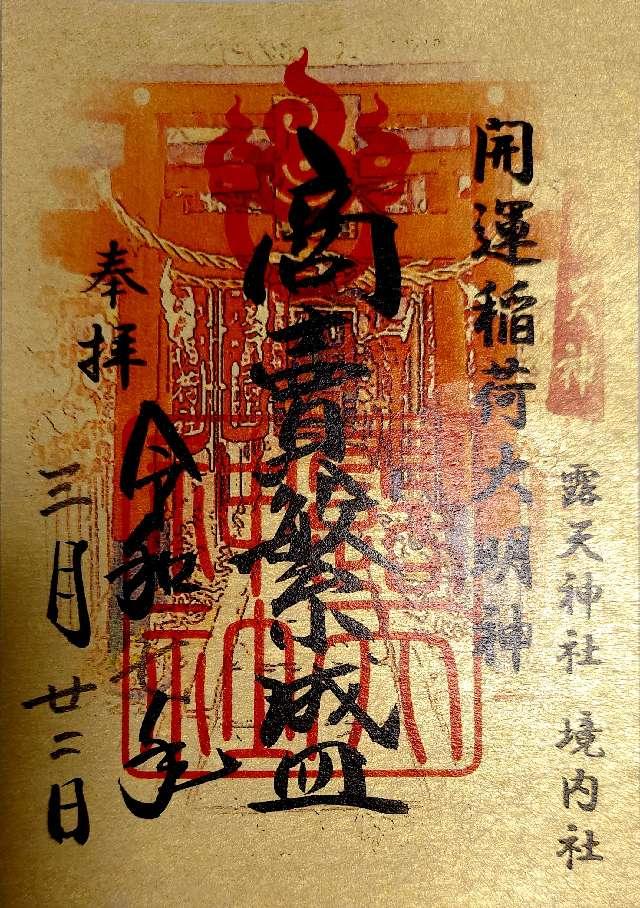 天神
露天神社 境内社
開運稲荷大明神
商賣繁盛
奉拝
令和 年
三月廿二日